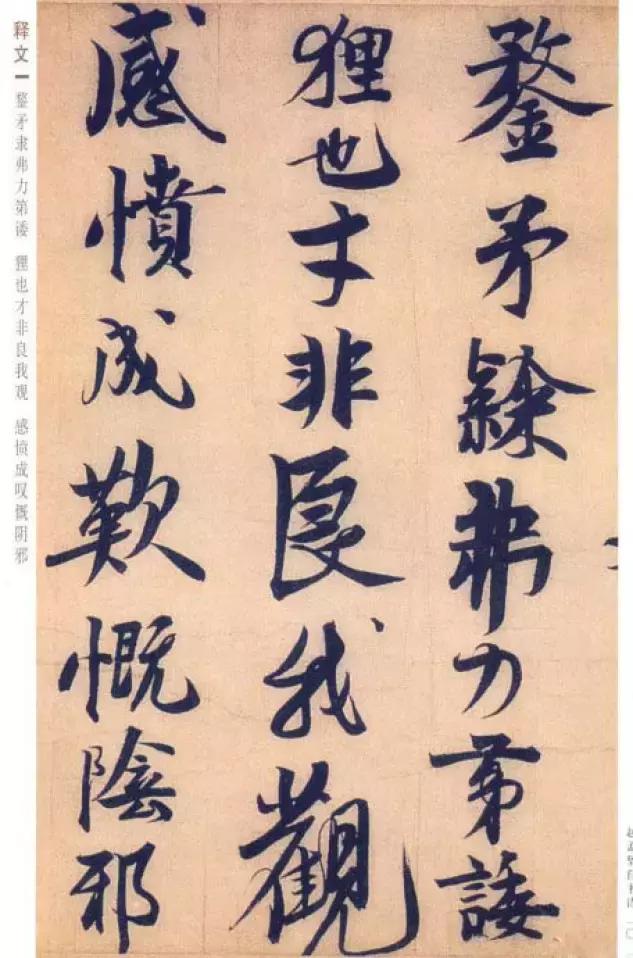 鍪矛隸弗力第諉
狸也才非良我觀
感憤成歎慨陰邪
释文 鍪矛隶弗力第诿 狸也才非良我观 感愤成叹慨阴邪